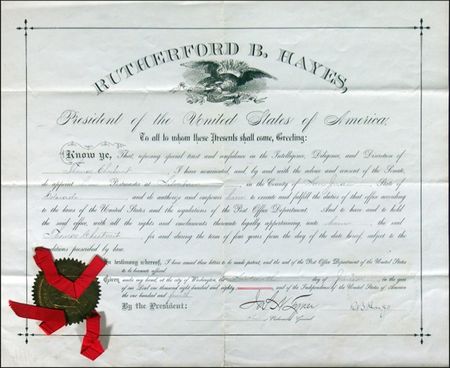 RUTHERFORD B. HAYES,
President of the United States of America;
To all to whom these Presents shall come, Greeting:
Know ye, That, reposing special trust and confidence in the Intelligence, Diligence, and Discretion of
I have nominated, and, by and with the advice and consent of the Senate,
do appoint Postmaster at in the County of State of
and do authorize and empower him to execute and fulfil the duties of that office according
to the laws of the United States and the regulations of the Post Office Department. And to have and to hold
the said office, with all the rights and emoluments thereunto legally appertaining, unto the said
Chestnut for and during the term of four years from the day of the date hereof, subject to the
conditions prescribed by law.
In testimony whereof, I have caused these letters to be made patent, and the seal of the Post Office Department of the United States
to be hereunto affixed.
Given under my hand, at the city of Washington, the day of in the year
of our Lord one thousand eight hundred and eighty and of the Independence of the United States of America
the one hundred and fourth.
By the President:
Postmaster General